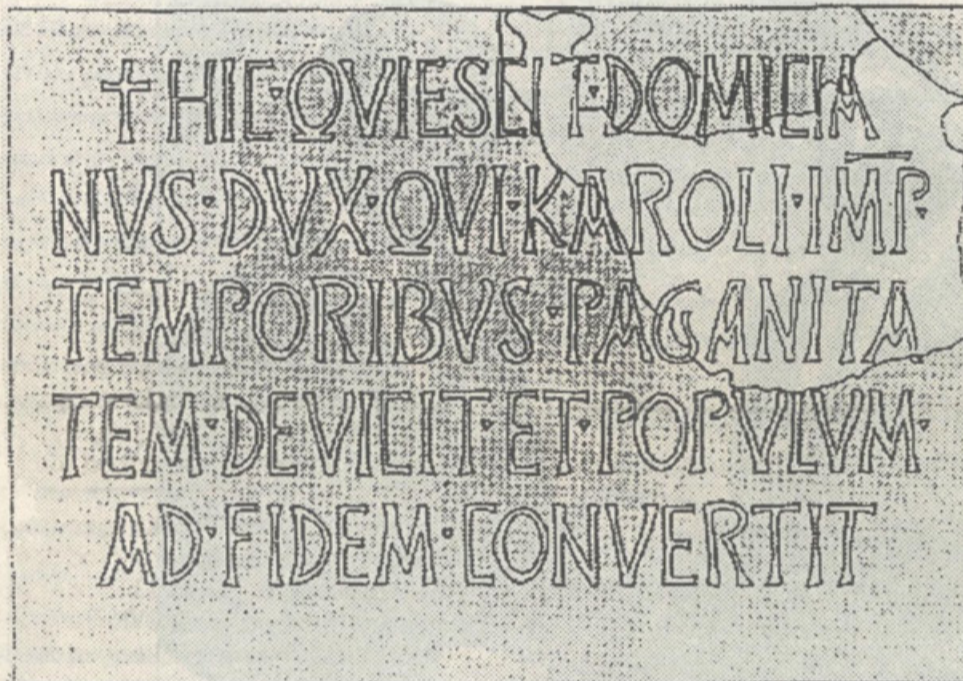 ✝ HIC·QVIESCIT·DOMICIA
NVS·DVX·QVI·KAROLI·IMP·
TEMPORIBVS·PAGANITA
TEM·DEVICIT·ET·POPVLVM·
AD·FIDEM·CONVERTIT